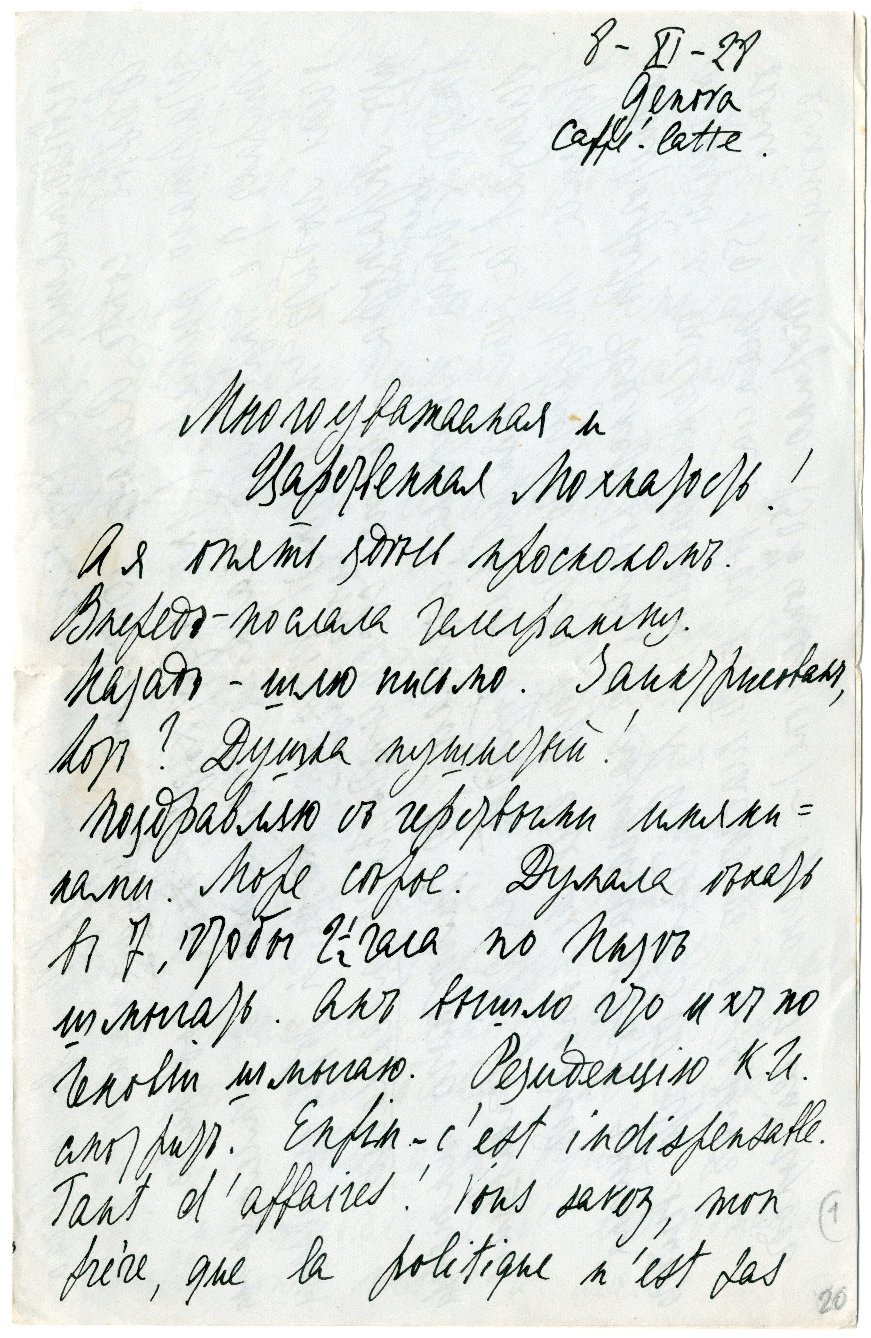 8 - XI - 28
Genova
Caffé-latte.
Многоуважаемая и
Царственная Мохнатость!
А я опять здѣсь проскокомъ.
Впередъ - послала телеграмму.
Назадъ - шлю письмо. Заинтрисованъ,
Котъ? Душка пушистый!
Поздравляю съ
нами. Море сѣрое. Думала ѣхать
въ 7, чтобы 2½ часа по Пизѣ
шмыгать. Анъ вышло что ихъ по
Геновѣ шмыгаю. Резиденцію К.И.
смотрить. Enfin - c'est indispensable.
Tant d'affaires! Vous savez, mon
frére, que la politique n'est pas
(1
20